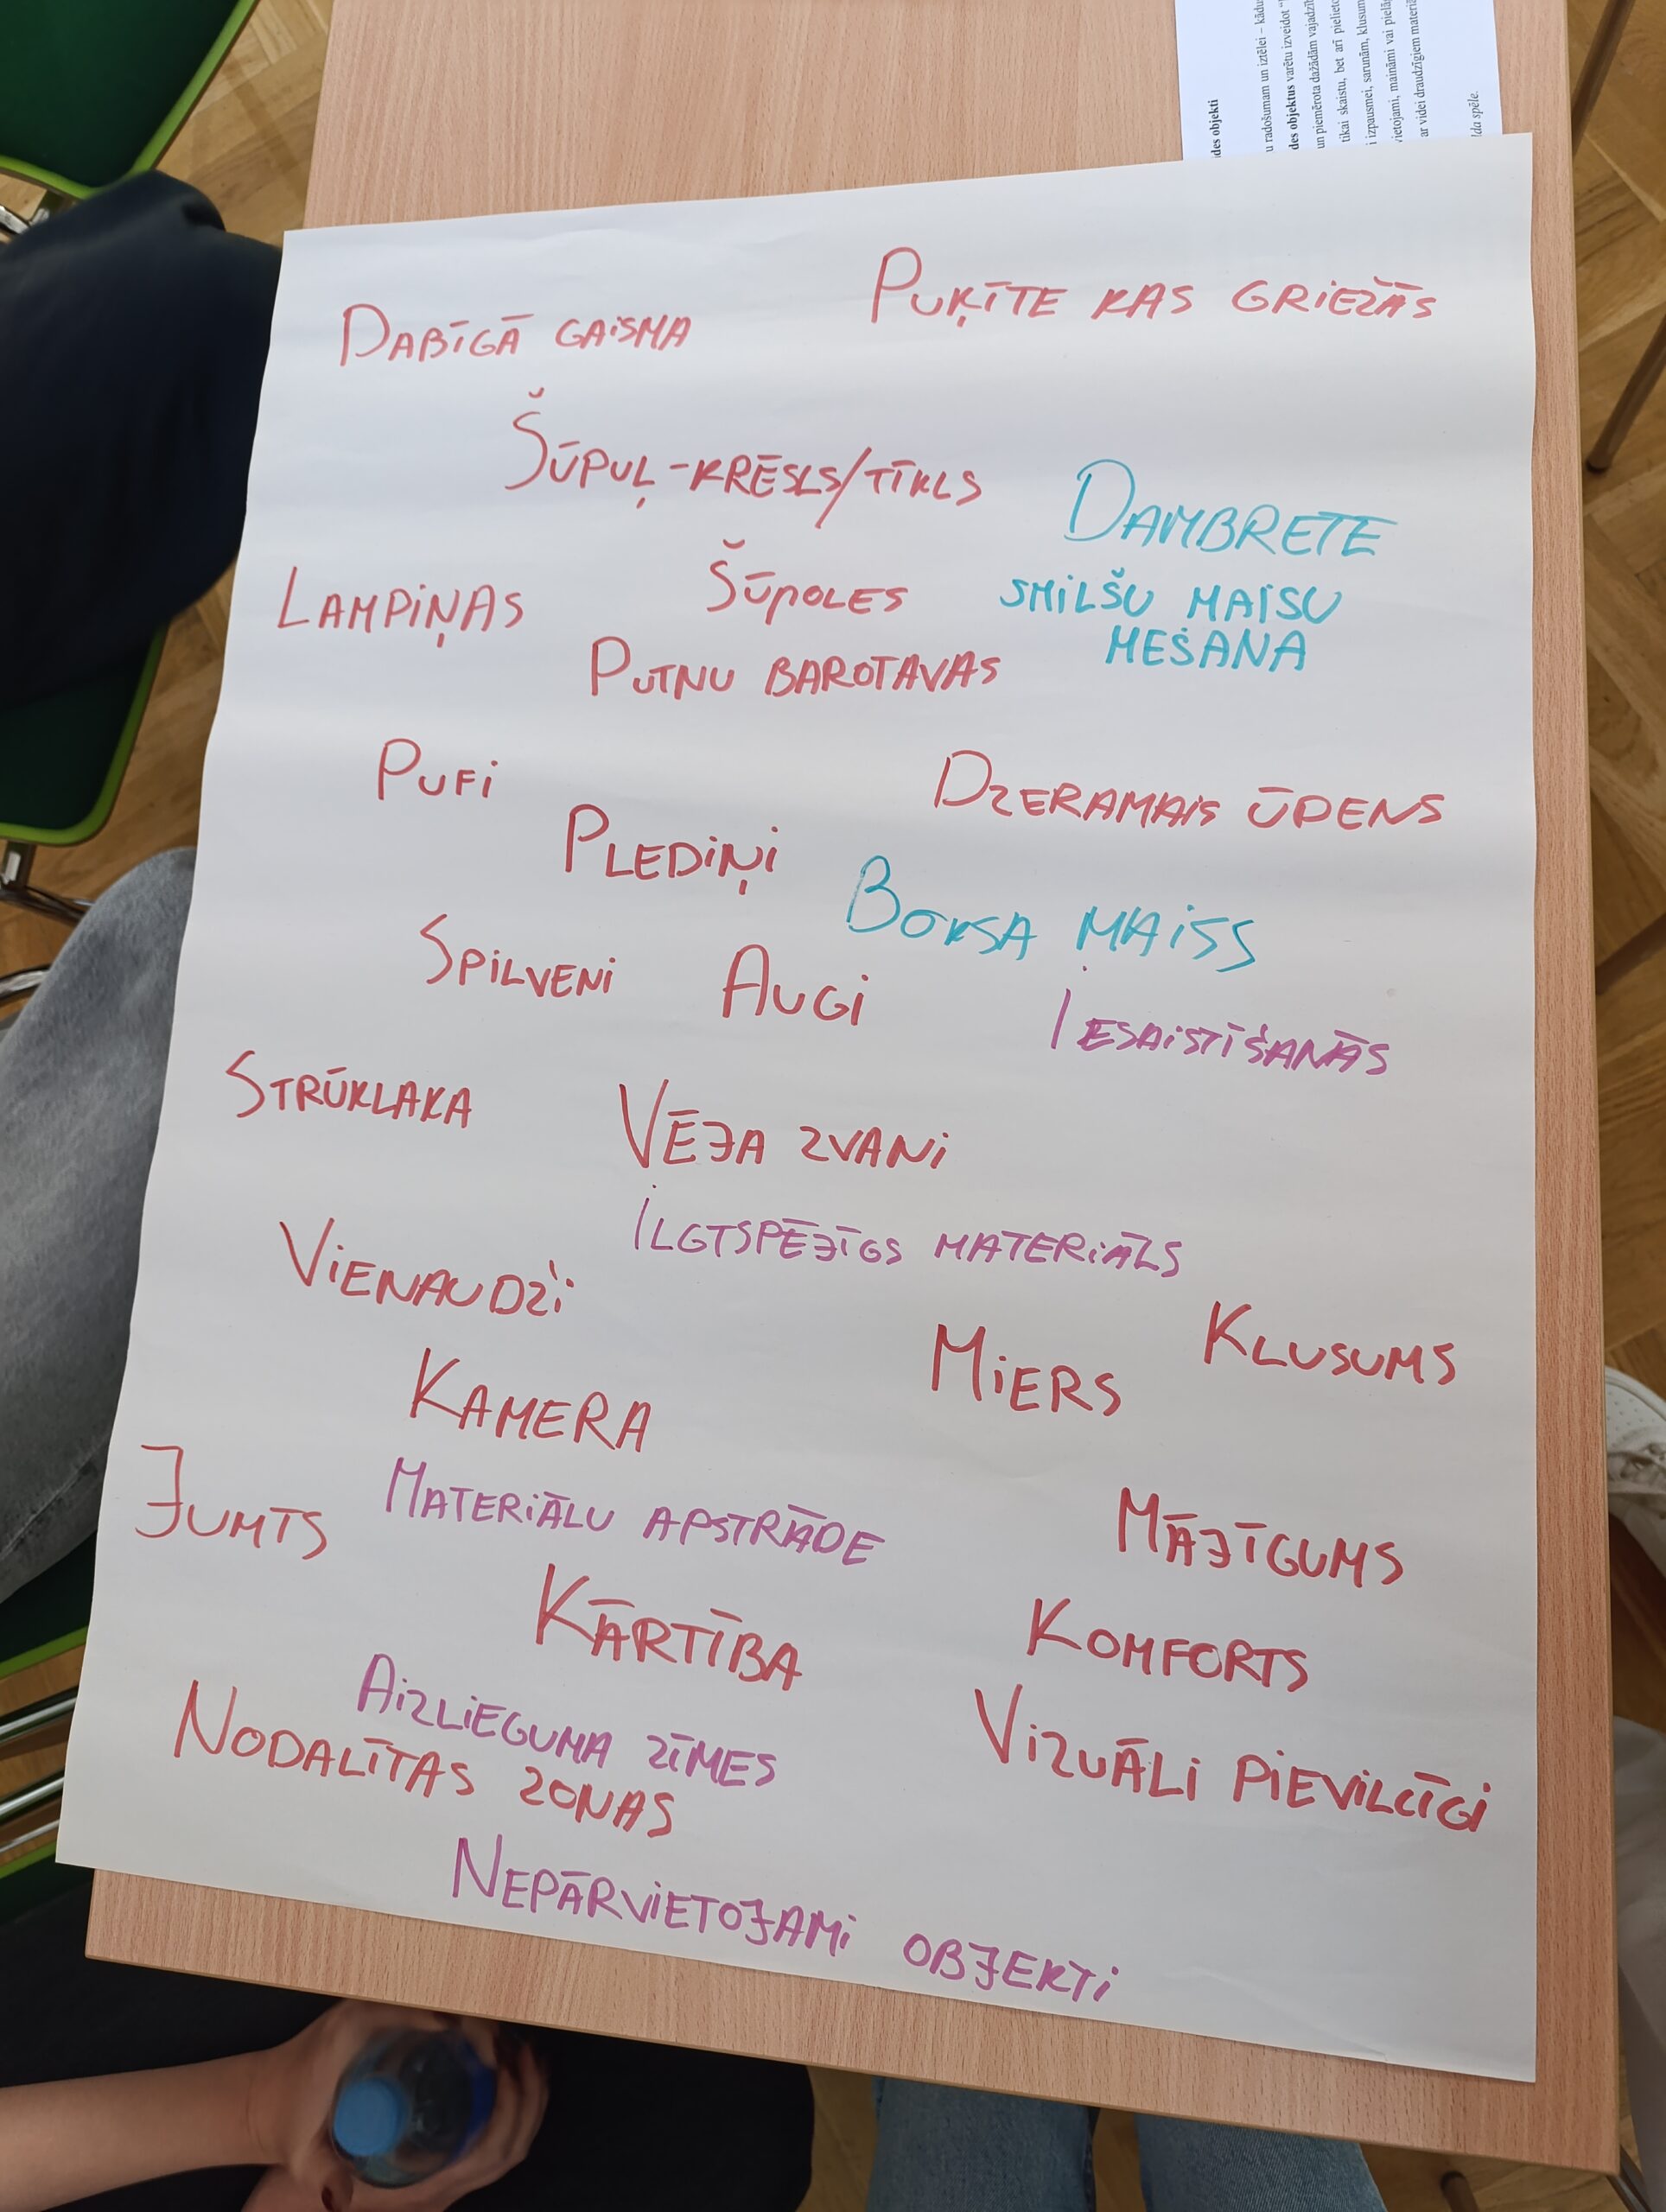 des objekti
u radošumam un iztēlei – kādu
des objektus varētu izveidot
un piemērota dažādām vajadzīb
tikai skaistu, bet arī pielieto
i izpausmei, sarunām, klusum
vietojami, maināmi vai pielāg
ar videi draudzīgiem materiā
lda spēle.
DABĪGĀ GAISMA
PUĶĪTE KAS GRIEŽĀS
ŠŪPUĻ-KRĒSLS/TĪKLS
DAMBRETE
LAMPIŅAS
ŠŪPOLES
SMILŠU MAISU
MEŠANA
PUTNU BAROTAVAS
PUFI
DZERAMAIS ŪDENS
PLEDIŅI
BOKSA MAISS
SPILVENI
AUGI
IESAISTĪŠANĀS
STRŪKLAKA
VĒJA ZVANI
ILGTSPĒJĪGS MATERIĀLS
VIENAUDŽI
KLUSUMS
MIERS
KAMERA
JUMTS
MATERIĀLU APSTRĀDE
MĀJĪGUMS
KĀRTĪBA
KOMFORTS
AIZLIEGUMA ZĪMES
NODALĪTAS ZONAS
VIZUĀLI PIEVILCĪGI
NEPĀRVIETOJAMI OBJEKTI